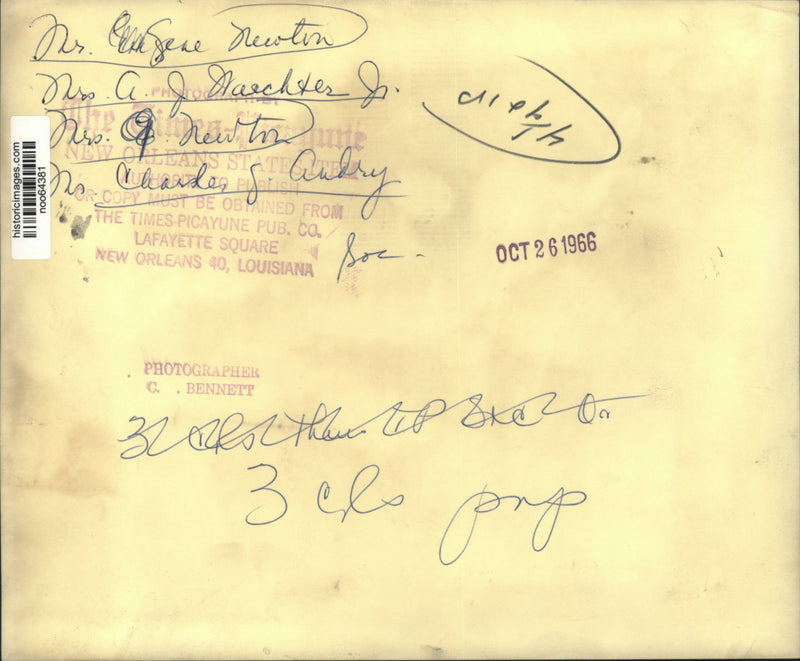 Mr. Eugene Newton
Mrs A. J. Waechter Jr.
Mrs. Newton
Ms Charles J. Andry
PHOTOGRAPH BY
The Times-Picayune
NEW ORLEANS STATES-ITEM
AUTHORITY TO PUBLISH
OR COPY MUST BE OBTAINED FROM
THE TIMES-PICAYUNE PUB. CO.
LAFAYETTE SQUARE
NEW ORLEANS 40, LOUISIANA
Soc
OCT 26 1966
historicimages.com
noo64381
PHOTOGRAPHER
C. . BENNETT
3 cls Thur
3 cls pnp